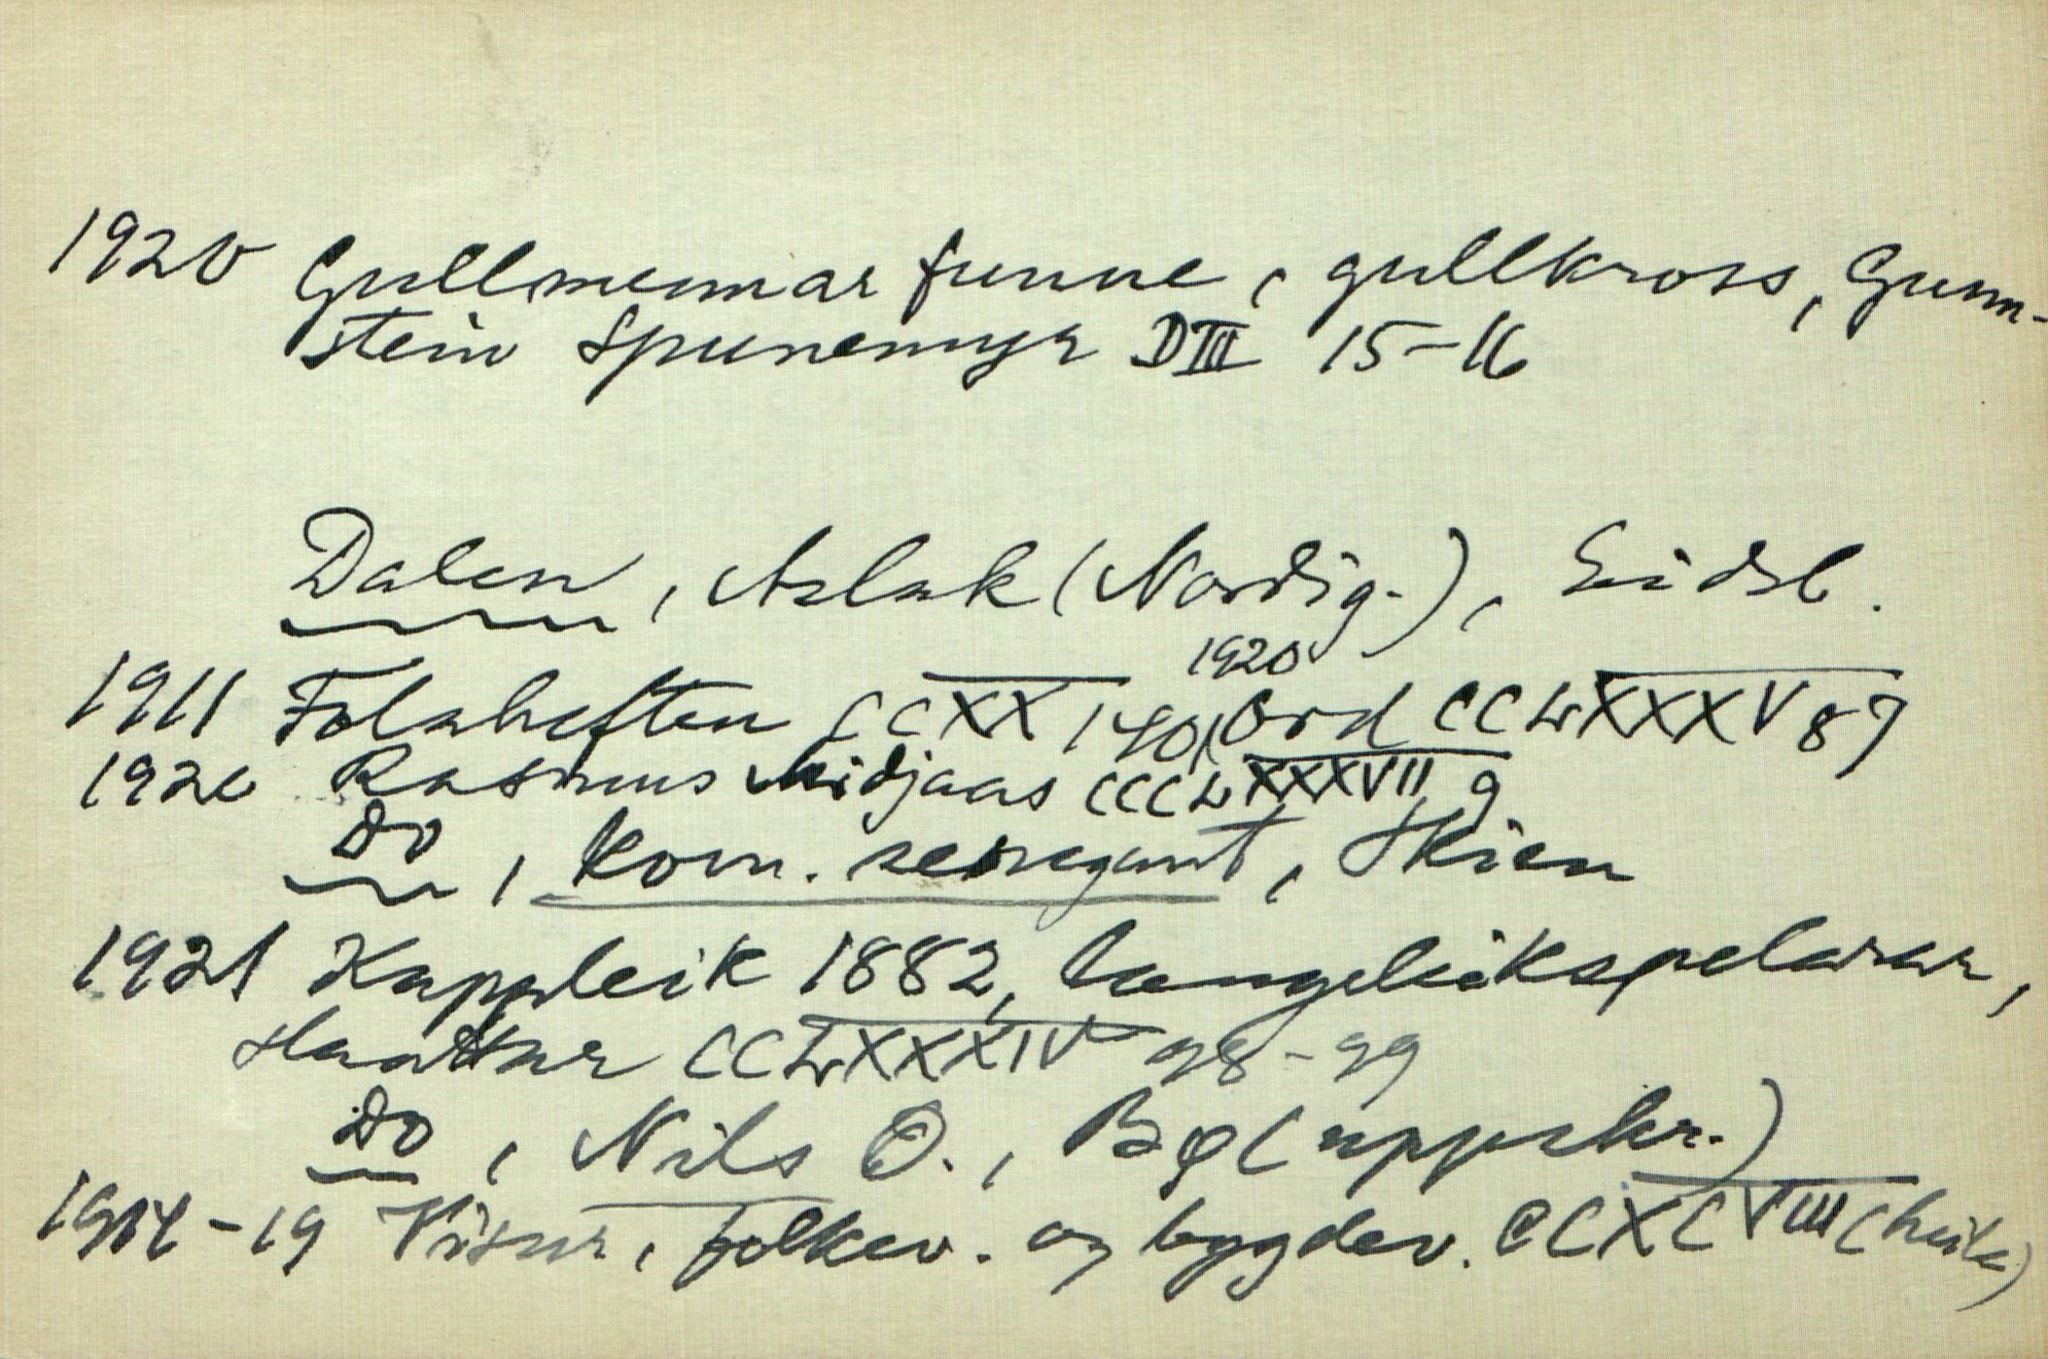 1920 Gullmunnar funne, gullkross, Gunn-
stein Spunemyr DIII 15-16
Dalen, Aslak (Nordig.), Eidsb.
1920
1911 Folaheften CCXX 140, Ord CCLXXXV 87
1920 Rasmus Midjaas CCCLXXXVII 9
Do, kom. reregent, Skien
1921 Kappleik 1882, langeleikspelarar,
Haattur CCLXXXIV 98-99
Do, Nils O., Bø (uppskr.)
1914-19 Visur, folkev. og bygdev. CCXCVIII (heile)